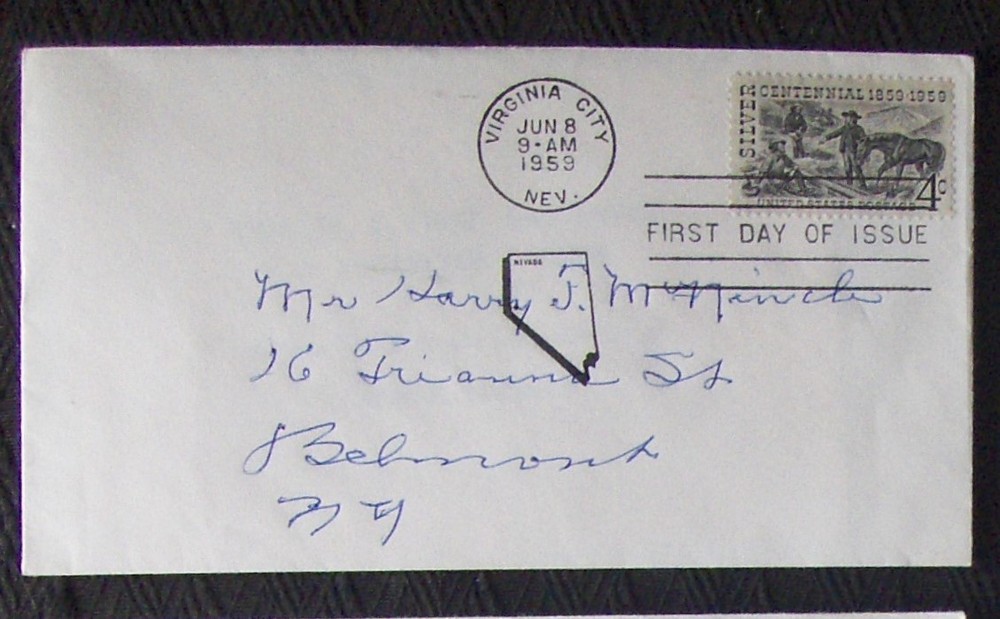 VIRGINIA CITY
JUN 8
9-AM
1959
NEV.
SILVER CENTENNIAL 1859·1959
4c
UNITED STATES POSTAGE
FIRST DAY OF ISSUE
NEVADA
Mr Harry F. McNinch
16 Trianna St
Belmont
N Y